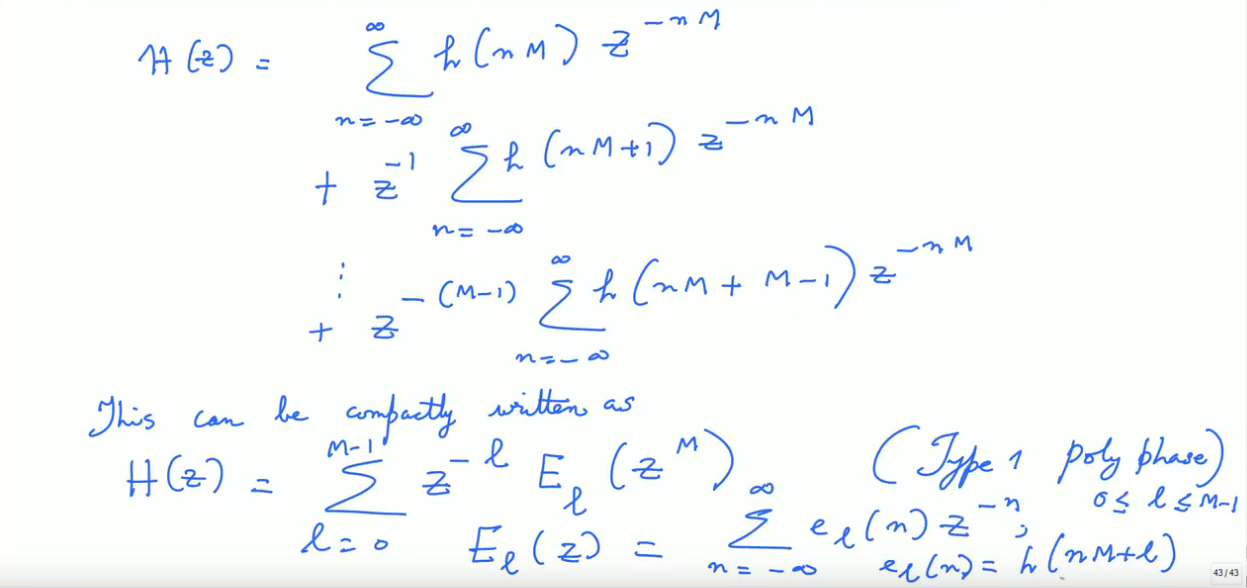 H(z) = ∑_{n=-∞}^{∞} h(nM) z^{-nM}
+ z^{-1} ∑_{n=-∞}^{∞} h(nM+1) z^{-nM}
⋮
+ z^{-(M-1)} ∑_{n=-∞}^{∞} h(nM + M-1) z^{-nM}
This can be compactly written as
H(z) = ∑_{l=0}^{M-1} z^{-l} E_l(z^M) (Type 1 poly phase)
0 ≤ l ≤ M-1
E_l(z) = ∑_{n=-∞}^{∞} e_l(n) z^{-n}; e_l(n) = h(nM+l)
43/43